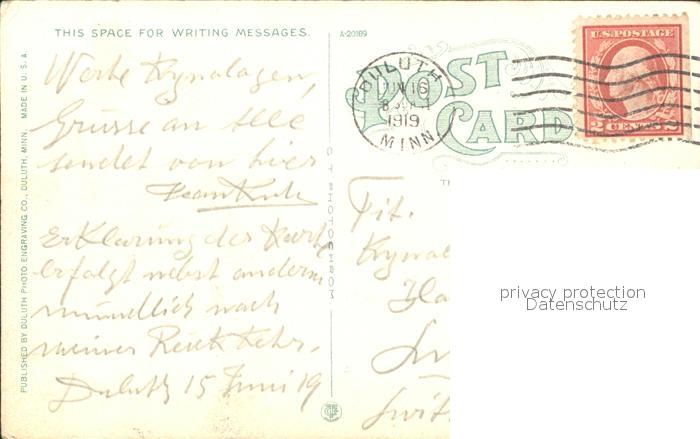 THIS SPACE FOR WRITING MESSAGES.
A-20169
Werte
Grüsse an Alle
sendet von hier
Erklärung der Karte
erfolgt nebst anderm
mündlich nach
meiner Rückkehr.
Duluth 15 Juni 19
PUBLISHED BY DULUTH PHOTO ENGRAVING CO., DULUTH, MINN. MADE IN U.S.A.
C. T. PHOTOCHROM
POST CARD
DULUTH
1919
MINN
U.S. POSTAGE
2 CENTS 2
Tit.
privacy protection
Datenschutz